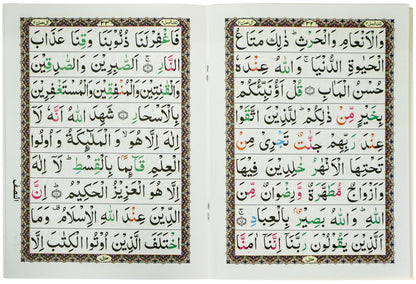 وَالْاَنْعَامِ وَالْحَرْثِ ؕ ذٰلِكَ مَتَاعُ
الْحَيٰوةِ الدُّنْيَا ۚ وَاللّٰهُ عِنْدَهٗ
حُسْنُ الْمَاٰبِ ۝ قُلْ اَؤُنَبِّئُكُمْ
بِخَيْرٍ مِّنْ ذٰلِكُمْ ؕ لِلَّذِيْنَ اتَّقَوْا
عِنْدَ رَبِّهِمْ جَنّٰتٌ تَجْرِيْ مِنْ
تَحْتِهَا الْاَنْهٰرُ خٰلِدِيْنَ فِيْهَا
وَاَزْوَاجٌ مُّطَهَّرَةٌ وَّرِضْوَانٌ مِّنَ
اللّٰهِ ؕ وَاللّٰهُ بَصِيْرٌۢ بِالْعِبَادِ ۝
اَلَّذِيْنَ يَقُوْلُوْنَ رَبَّنَاۤ اِنَّنَاۤ اٰمَنَّا
فَاغْفِرْ لَنَا ذُنُوْبَنَا وَقِنَا عَذَابَ
النَّارِ ۝ اَلصّٰبِرِيْنَ وَالصّٰدِقِيْنَ
وَالْقٰنِتِيْنَ وَالْمُنْفِقِيْنَ وَالْمُسْتَغْفِرِيْنَ
بِالْاَسْحَارِ ۝ شَهِدَ اللّٰهُ اَنَّهٗ لَاۤ
اِلٰهَ اِلَّا هُوَ ۙ وَالْمَلٰٓئِكَةُ وَاُولُوا
الْعِلْمِ قَآئِمًاۢ بِالْقِسْطِ ؕ لَاۤ اِلٰهَ
اِلَّا هُوَ الْعَزِيْزُ الْحَكِيْمُ ۝ اِنَّ
الدِّيْنَ عِنْدَ اللّٰهِ الْاِسْلَامُ ۟ وَمَا
اخْتَلَفَ الَّذِيْنَ اُوْتُوا الْكِتٰبَ اِلَّا